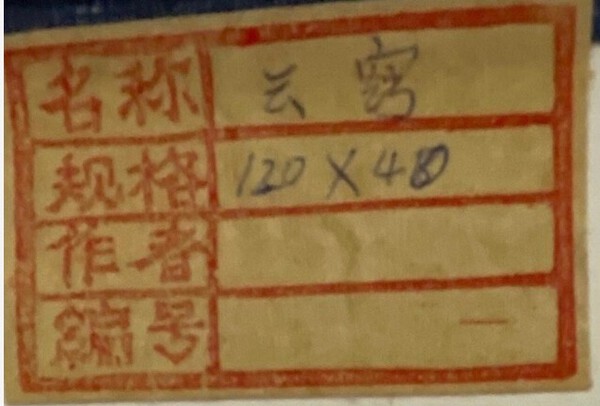 名称 云窍
规格 120×480
作者
编号 一